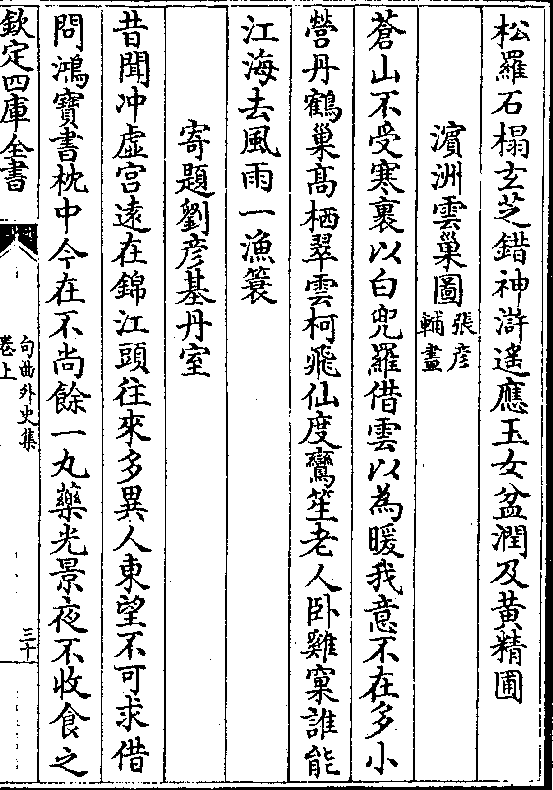 松羅石榻玄芝錯神滸遙應玉女盆潤及黃精圃
濱洲雲巢圖張彦輔畫
蒼山不受寒裹以白兜羅借雲以為暖我意不在多小
營丹鶴巢髙栖翠雲柯飛仙度鸞笙老人卧雞窠誰能
江海去風雨一漁簑
寄題劉彦基丹室
昔聞冲虛宫遠在錦江頭往來多異人東望不可求借
問鴻寶書枕中今在不尚餘一丸藥光景夜不收食之
欽定四庫全書
句曲外史集
卷上
三十